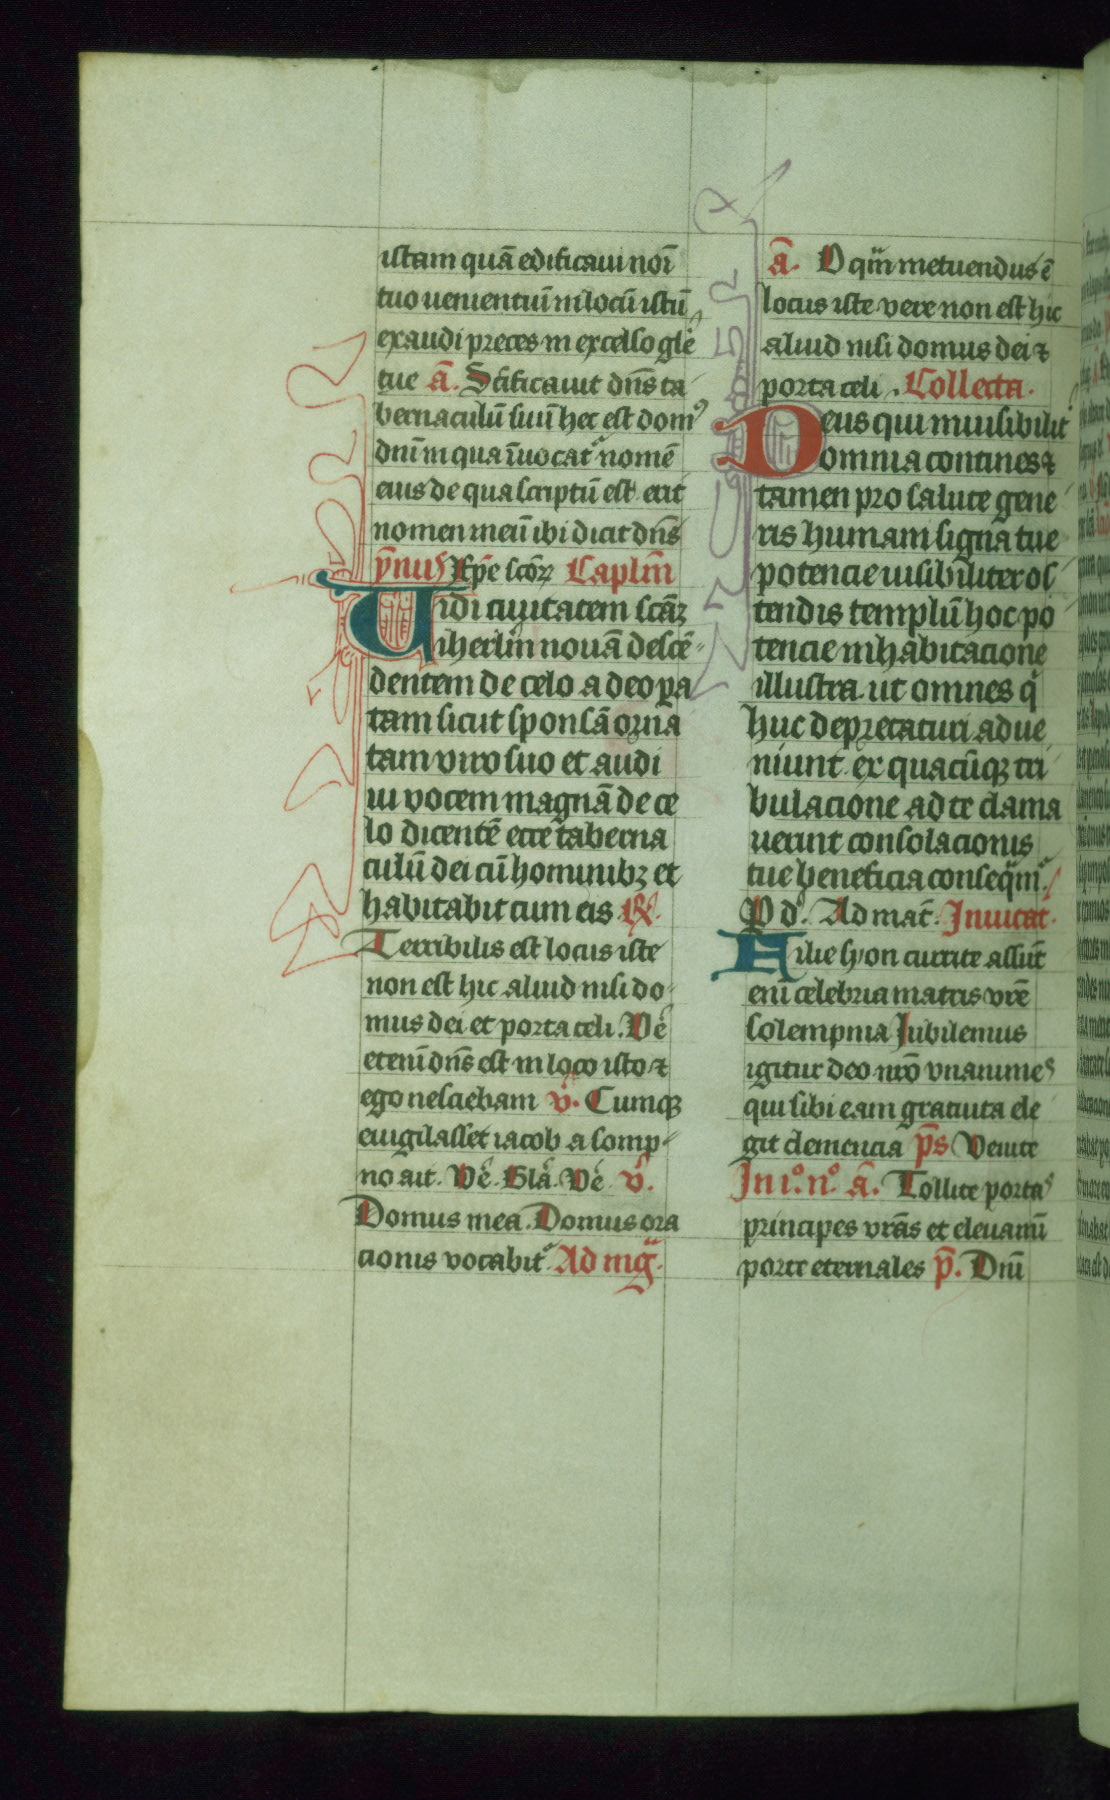 istam quā edificaui noı̄
tuo uenientiū in locū istū
exaudi preces in excelso glē
tue ā. Sc̄ificauit dn̄s ta
bernaculū suū hec est domꝰ
dn̄i in qua īuocatᷣ nomē
eius de qua scriptū est erit
nomen meū ibi dicit dn̄s
ẏnus Xpē sc̄oꝝ Caplm̄
Uidi ciuitatem sc̄aꝫ
iherlm̄ nouā descē-
dentem de celo a deo pa
tam sicut sponsā orna
tam viro suo et audi
ui vocem magnā de ce
lo dicentē ecce taberna
culū dei cū hominibꝫ et
habitabit cum eis ℟.
Terribilis est locus iste
non est hic aliud nisi do-
mus dei et porta celi. Vē
etenī dn̄s est in loco isto ⁊
ego nesciebam v̄. Cumqꝫ
euigilasset iacob a somp-
no ait. Vē. Glā. Vē v̄.
Domus mea. Domus ora
cionis vocabitᷣ. Ad mgᷓ.
ā. O qᷓm metuendus ē
locus iste vere non est hic
aliud nisi domus dei ⁊
porta celi. Collecta.
Deus qui inuisibilitᷣ
omnia contines ⁊
tamen pro salute gene
ris humani signa tue
potencie uisibiliter os
tendis templū hoc po
tencie inhabitacione
illustra. ut omnes q̇
huc deprecaturi adue
niunt. ex quacūqꝫ tri
bulacione ad te clama
uerint consolacionis
tue beneficia conseqᷓmᷣ.
P d. Ad mat̄. Inuitat.
Filie syon currite assūt
enī celebria matris vrē
solempnia Iubilemus
igitur deo nr̄o vnanimes
qui sibi eam gratuita ele
git clemencia p̄s Venite
In i.º n.º ā. Tollite portas
principes vrās et eleuamī
porte eternales p̄. Dnī